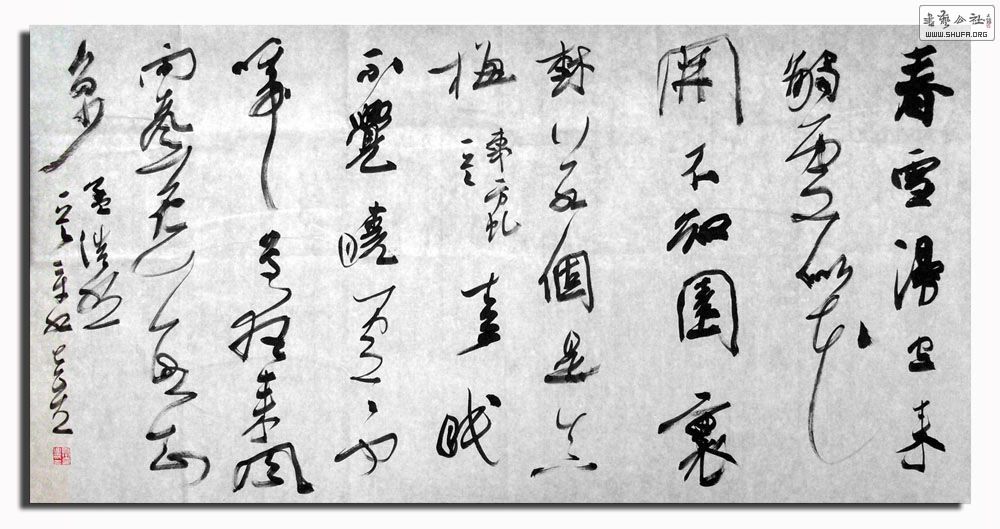 書藝公社
WWW.SHUFA.ORG
春雪滿空來
觸處似花
開不知園裏
樹若個是真
梅
東方虬
一首
春眠
不覺曉處々聞
啼鳥夜來風
雨聲花落知
多少
孟浩然
一首辛卯